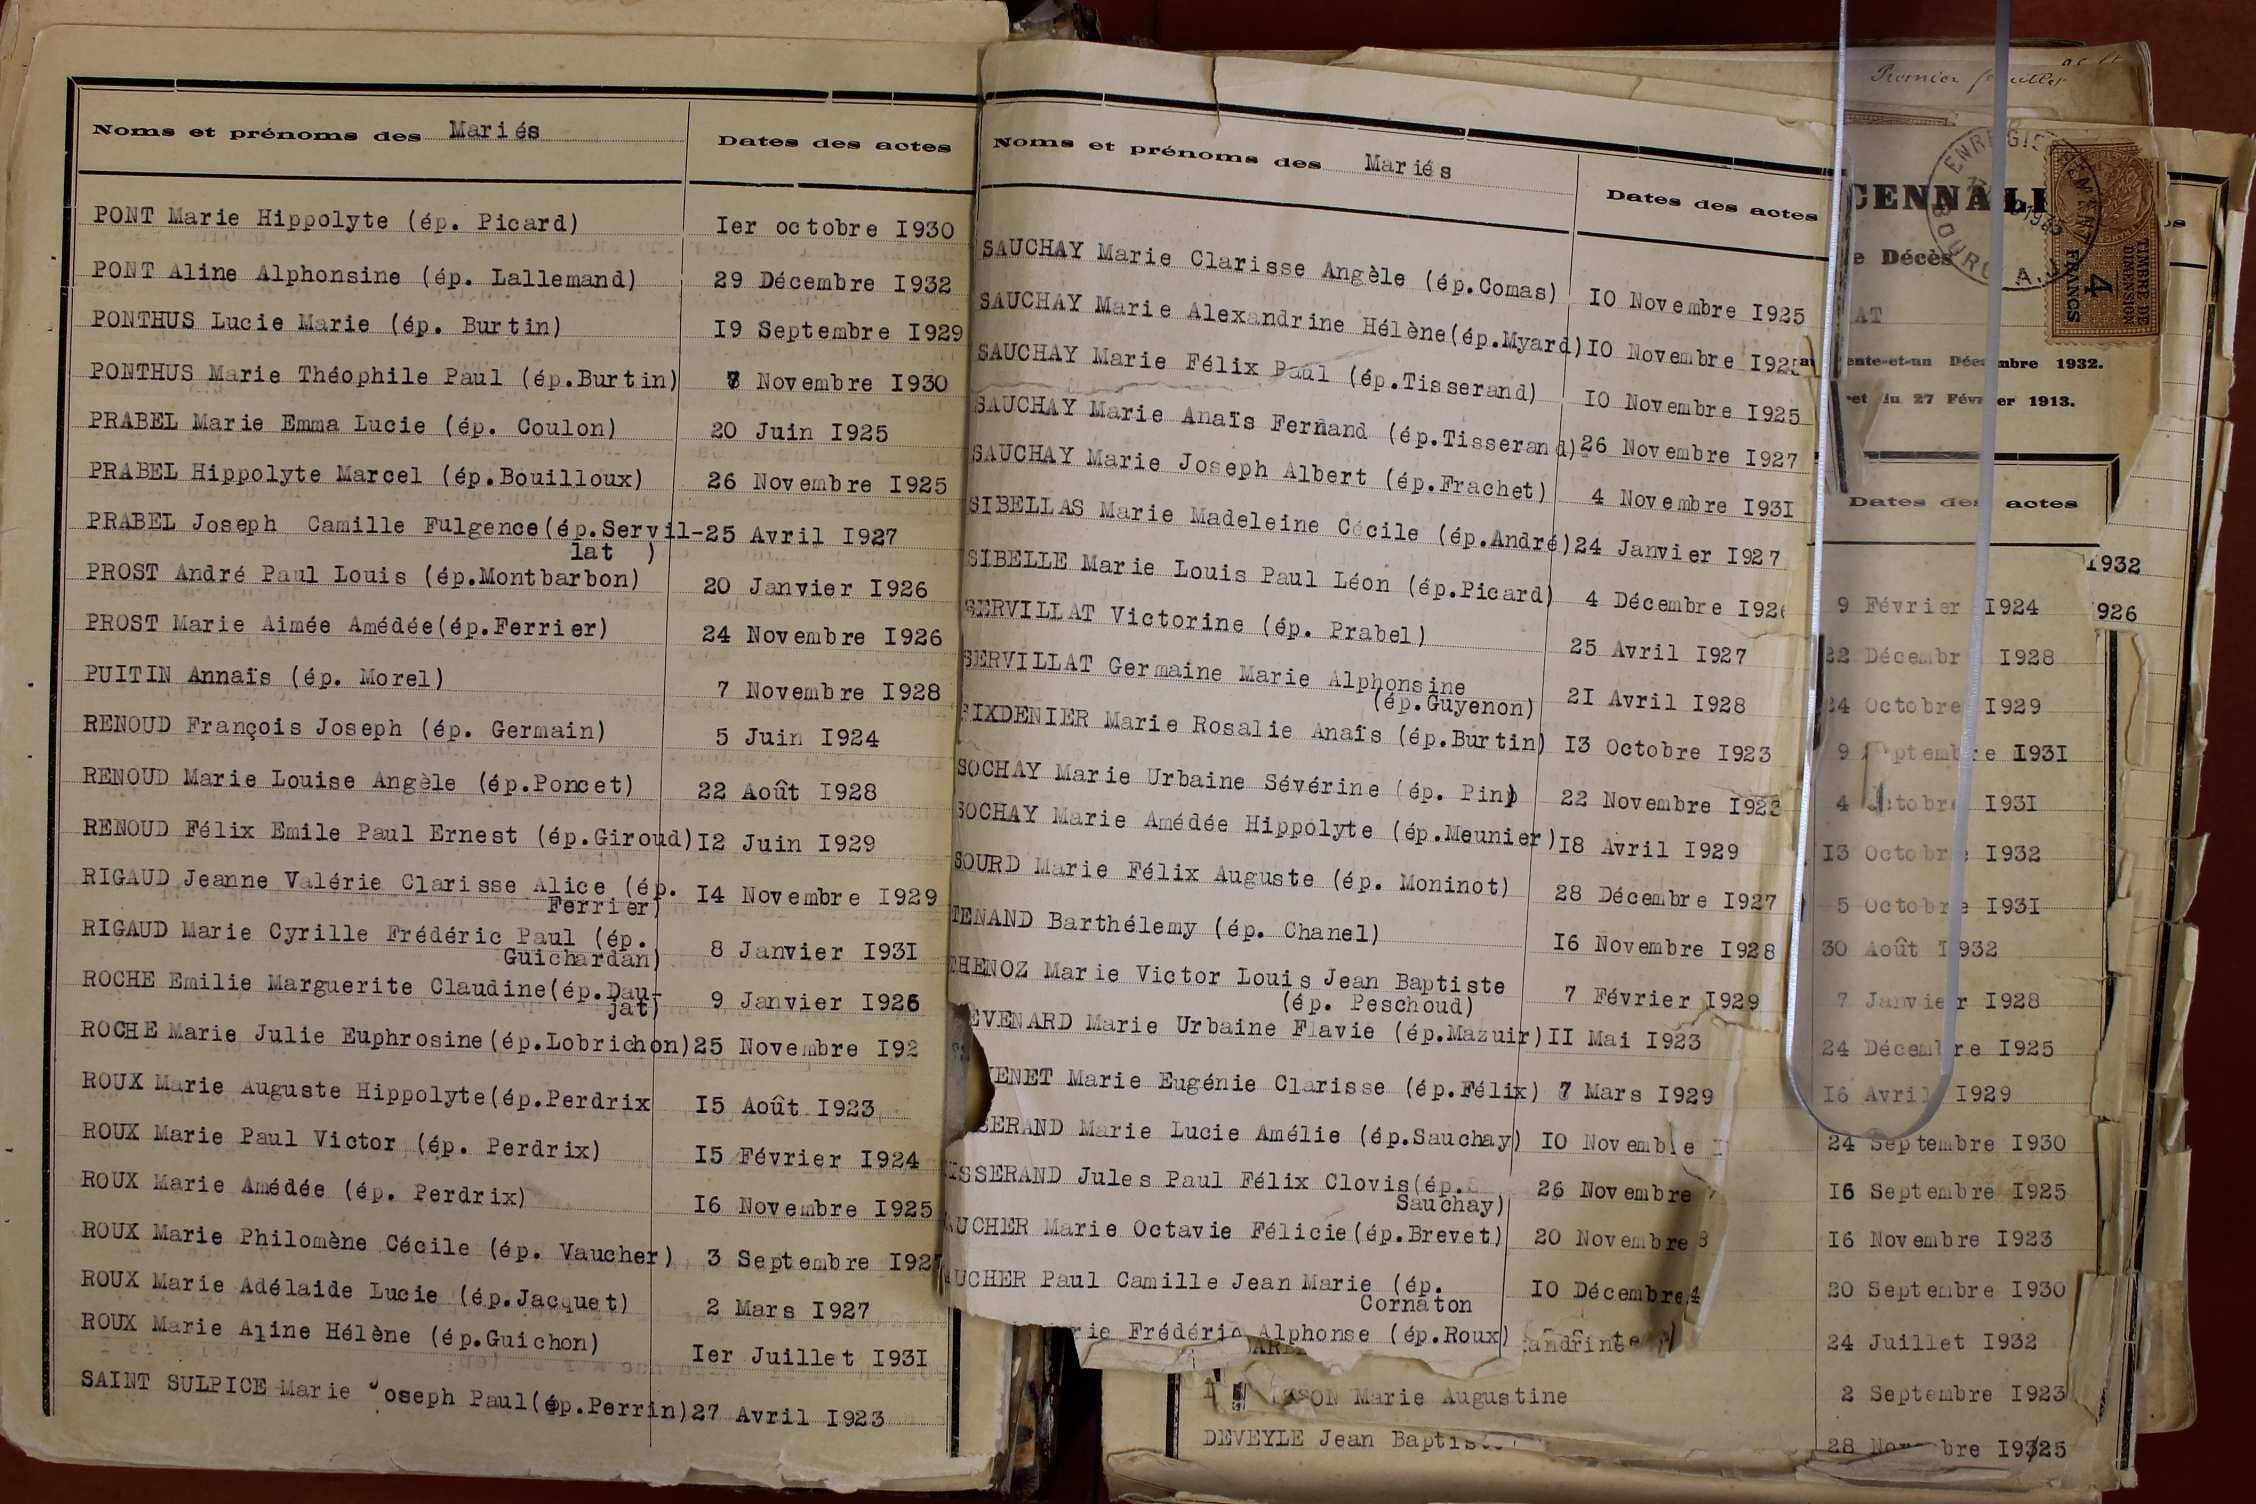 Noms et prénoms des Mariés
Dates des actes
PONT Marie Hippolyte (ép. Picard) Ier octobre I930
PONT Aline Alphonsine (ép. Lallemand) 29 Décembre I932
PONTHUS Lucie Marie (ép. Burtin) I9 Septembre I929
PONTHUS Marie Théophile Paul (ép.Burtin) Novembre I930
PRABEL Marie Emma Lucie (ép. Coulon) 20 Juin I925
PRABEL Hippolyte Marcel (ép.Bouilloux) 26 Novembre I925
PRABEL Joseph Camille Fulgence(ép.Servil- 25 Avril I927
lat )
PROST André Paul Louis (ép.Montbarbon) 20 Janvier I926
PROST Marie Aimée Amédée(ép.Ferrier) 24 Novembre I926
PUITIN Annaïs (ép. Morel) 7 Novembre I928
RENOUD François Joseph (ép. Germain) 5 Juin I924
RENOUD Marie Louise Angèle (ép.Poncet) 22 Août I928
RENOUD Félix Emile Paul Ernest (ép.Giroud) I2 Juin I929
RIGAUD Jeanne Valérie Clarisse Alice (ép. I4 Novembre I929
Ferrier)
RIGAUD Marie Cyrille Frédéric Paul (ép. 8 Janvier I93I
Guichardan)
ROCHE Emilie Marguerite Claudine(ép.Dau- 9 Janvier I926
jat)
ROCHE Marie Julie Euphrosine(ép.Lobrichon) 25 Novembre I92
ROUX Marie Auguste Hippolyte(ép.Perdrix I5 Août I923
ROUX Marie Paul Victor (ép. Perdrix) I5 Février I924
ROUX Marie Amédée (ép. Perdrix) I6 Novembre I925
ROUX Marie Philomène Cécile (ép. Vaucher) 3 Septembre I92
ROUX Marie Adélaide Lucie (ép.Jacquet) 2 Mars I927
ROUX Marie Aline Hélène (ép.Guichon) Ier Juillet I93I
SAINT SULPICE Marie Joseph Paul(ép.Perrin) 27 Avril I923
Noms et prénoms des Mariés
Dates des actes
SAUCHAY Marie Clarisse Angèle (ép.Comas) IO Novembre I925
SAUCHAY Marie Alexandrine Hélène(ép.Myard) IO Novembre I925
SAUCHAY Marie Félix Paul (ép.Tisserand) IO Novembre I925
SAUCHAY Marie Anaïs Fernand (ép.Tisserand) 26 Novembre I927
SAUCHAY Marie Joseph Albert (ép.Frachet) 4 Novembre I93I
SIBELLAS Marie Madeleine Cécile (ép.André) 24 Janvier I927
SIBELLE Marie Louis Paul Léon (ép.Picard) 4 Décembre I926
SERVILLAT Victorine (ép. Prabel) 25 Avril I927
SERVILLAT Germaine Marie Alphonsine 2I Avril I928
(ép.Guyenon)
SIXDENIER Marie Rosalie Anaïs (ép.Burtin) I3 Octobre I923
SOCHAY Marie Urbaine Sévérine (ép. Pin) 22 Novembre I923
SOCHAY Marie Amédée Hippolyte (ép.Meunier) I8 Avril I929
SOURD Marie Félix Auguste (ép. Moninot) 28 Décembre I927
TENAND Barthélemy (ép. Chanel) I6 Novembre I928
THENOZ Marie Victor Louis Jean Baptiste 7 Février I929
(ép. Peschoud)
EVENARD Marie Urbaine Flavie (ép.Mazuir) II Mai I923
ENET Marie Eugénie Clarisse (ép.Félix) 7 Mars I929
SERAND Marie Lucie Amélie (ép.Sauchay) IO Novembre I
ISSERAND Jules Paul Félix Clovis(ép. 26 Novembre
Sauchay)
AUCHER Marie Octavie Félicie(ép.Brevet) 20 Novembre 3
UCHER Paul Camille Jean Marie (ép. IO Décembre 4
Cornaton
rie Frédéric Alphonse (ép.Roux)
andrine
ON Marie Augustine
DEVEYLE Jean Baptis
Premier feuillet
ENREGISTREMENT
BOURG
CENNAL
e Décès
AT
ente-et-un Décembre 1932.
et du 27 Février 1913.
TIMBRE DE DIMENSION
4
FRANCS
Dates des actes
I932
926
9 Février I924
22 Décembre I928
24 Octobre I929
9 Septembre I93I
4 Octobre I93I
I3 Octobre I932
5 Octobre I93I
30 Août I932
7 Janvier I928
24 Décembre I925
I6 Avril I929
24 Septembre I930
I6 Septembre I925
I6 Novembre I923
20 Septembre I930
24 Juillet I932
2 Septembre I923
28 bre